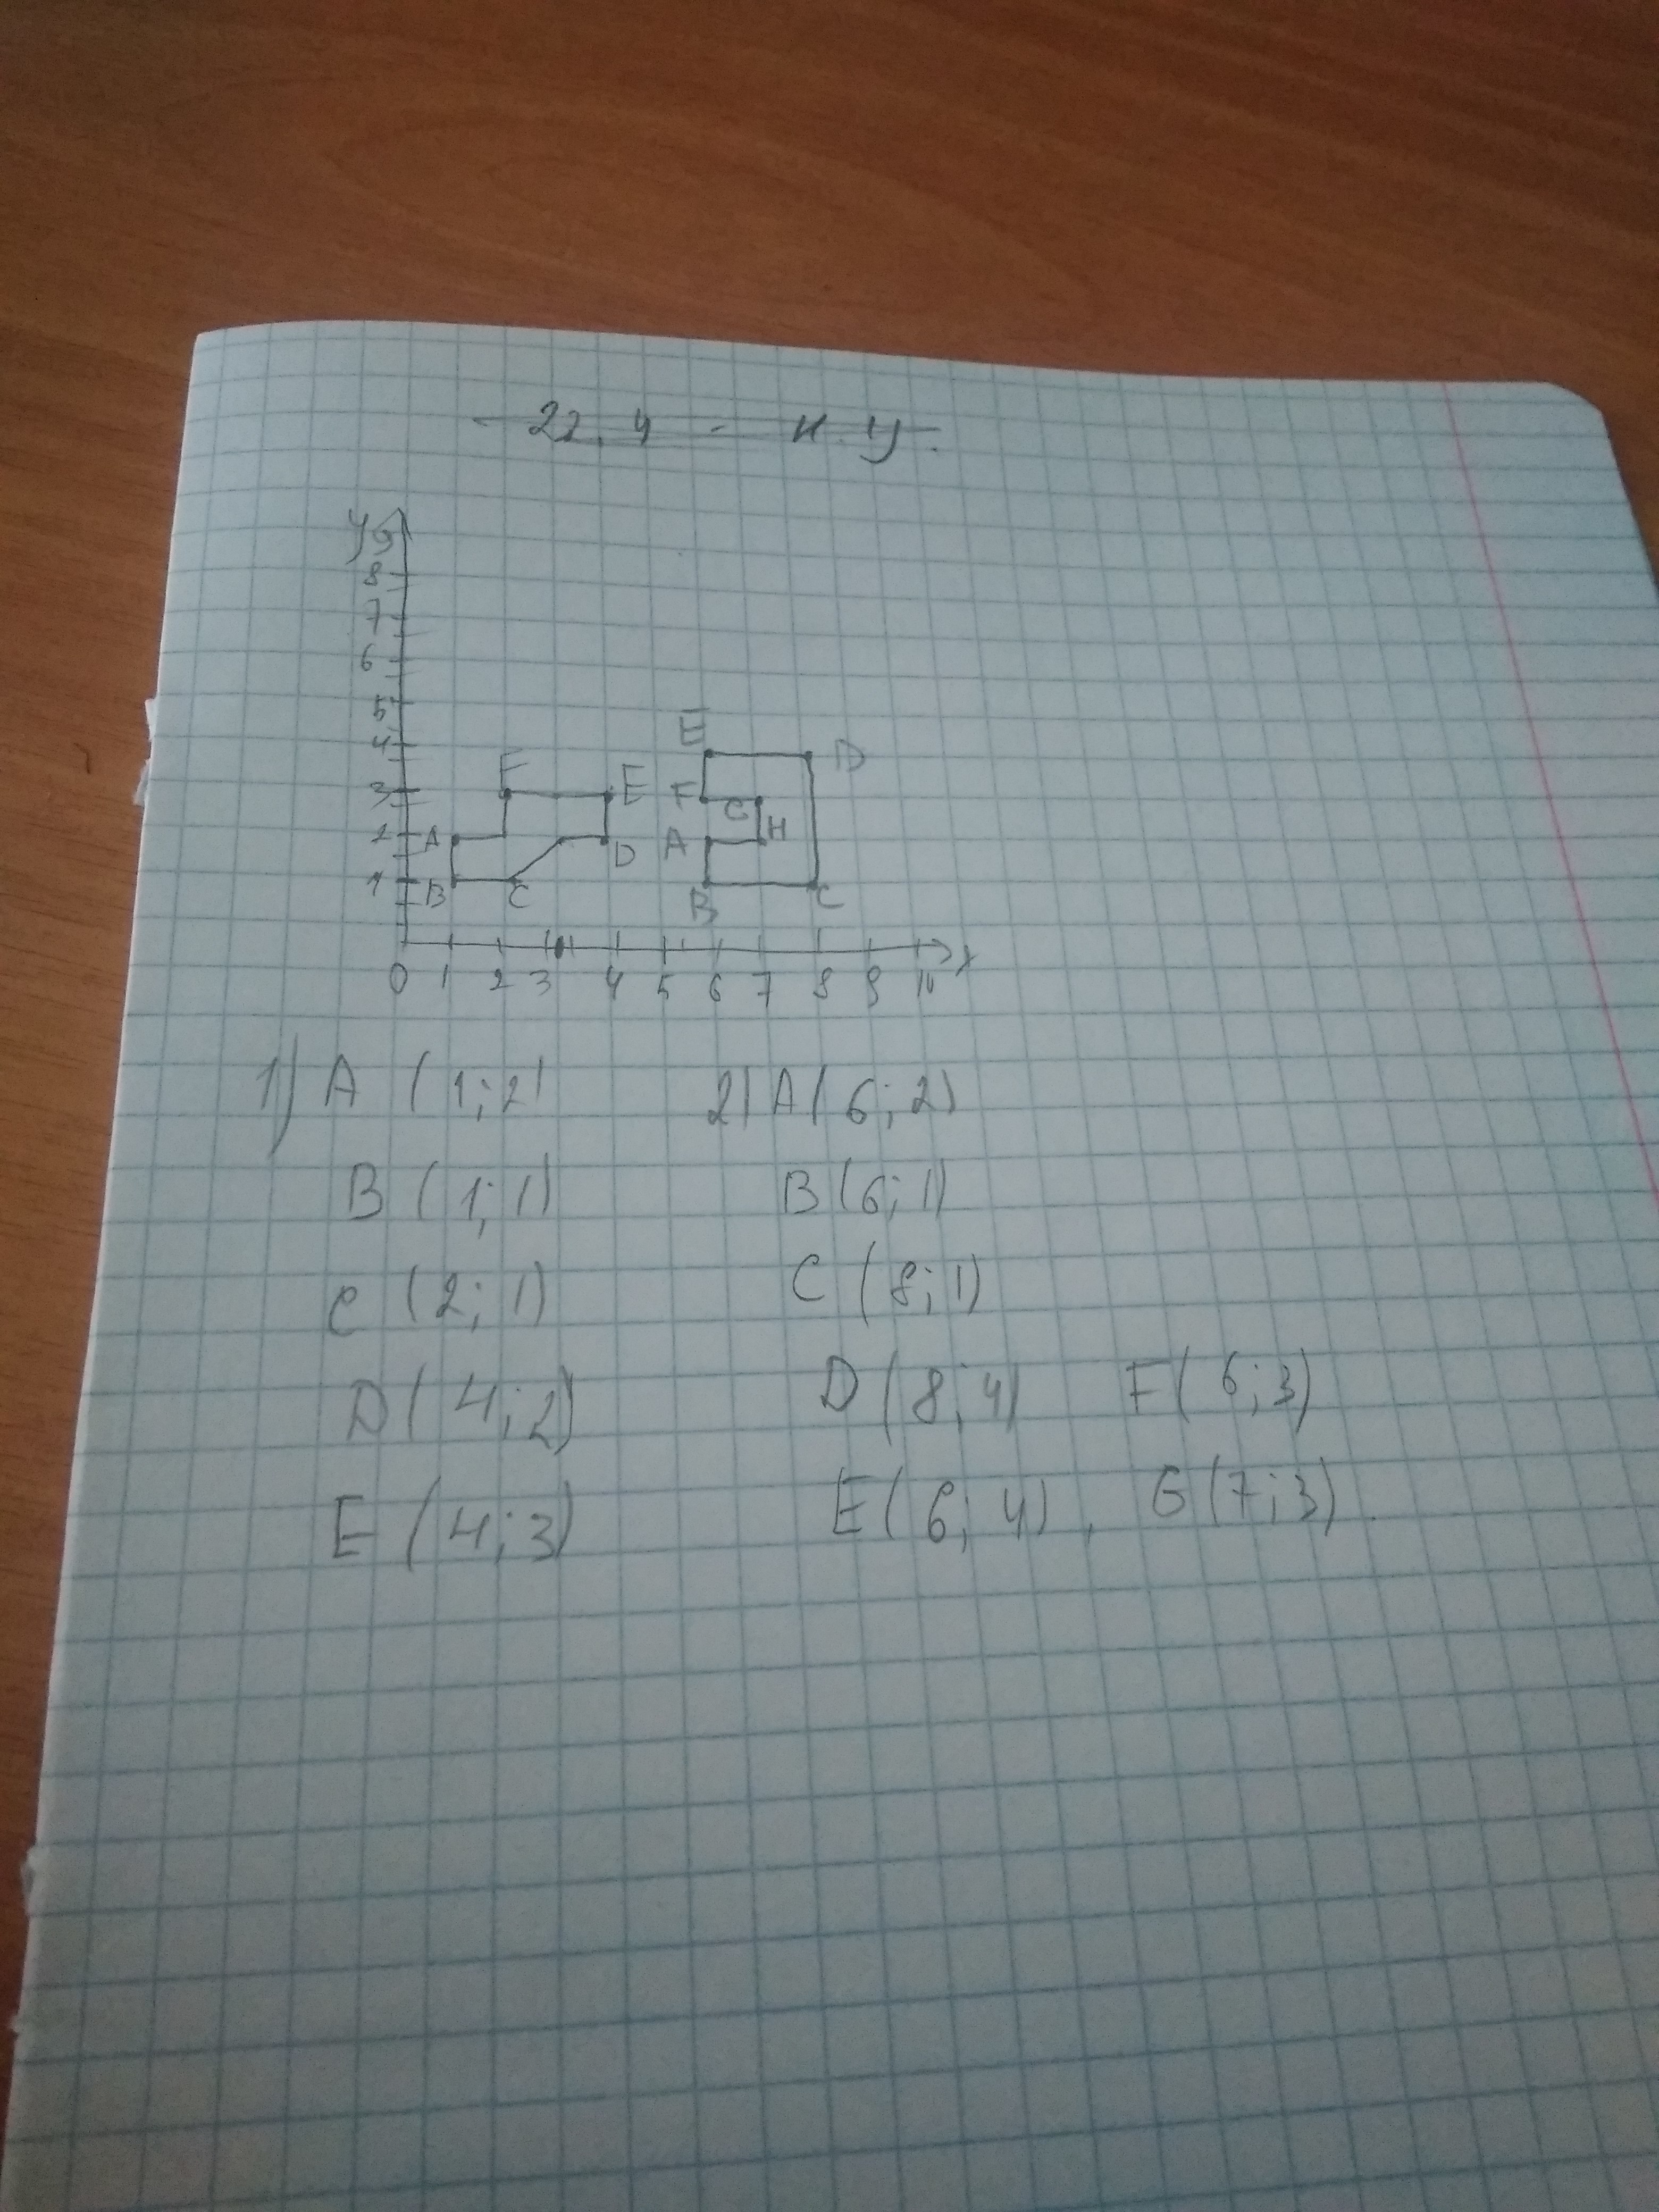 22.4 - н.у.
У 9
8
7
6
5
4
3
2
1
E D
F E F G
A D A H
B C B C
0 1 2 3 4 5 6 7 8 9 10 x
1) A (1;2) 2) A(6;2)
B (1;1) B(6;1)
C (2;1) C (8;1)
D(4;2) D(8;4) F(6;3)
E (4;3) E(6;4), G(7;3).